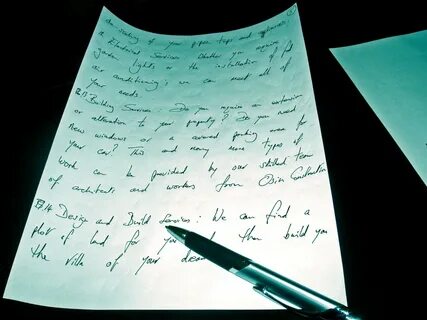 un-sealing of your pipes taps and appliances. 
& Electrical Services. Whether you require
garden lights or the installation of full
air conditioning; we can meet all of
your needs
Building Services: Do you require an extension
or alteration to your property? Do you need
New windows or a covered parking area for
your car? This and many more types of
work can be provided by our skilled team
of architects and workers from
Design and Build Services: We can find a
plot of land for you and then build you
the villa of your